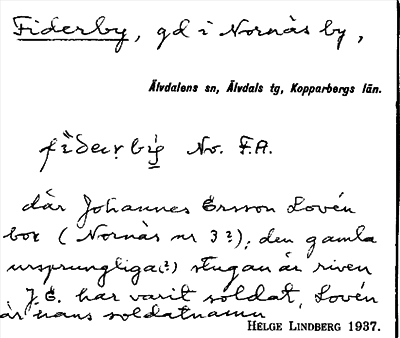 Fiderby, gd i Nornäs by,
Älvdalens sn, Älvdals tg, Kopparbergs län.
No. F.A.
där Johannes Ersson Lovén
bor (Nornäs nr 3?), den gamla
ursprungliga(?) stugan är riven
J. E. har varit soldat, Lovén
är hans soldatnamn
HELGE LINDBERG 1937.